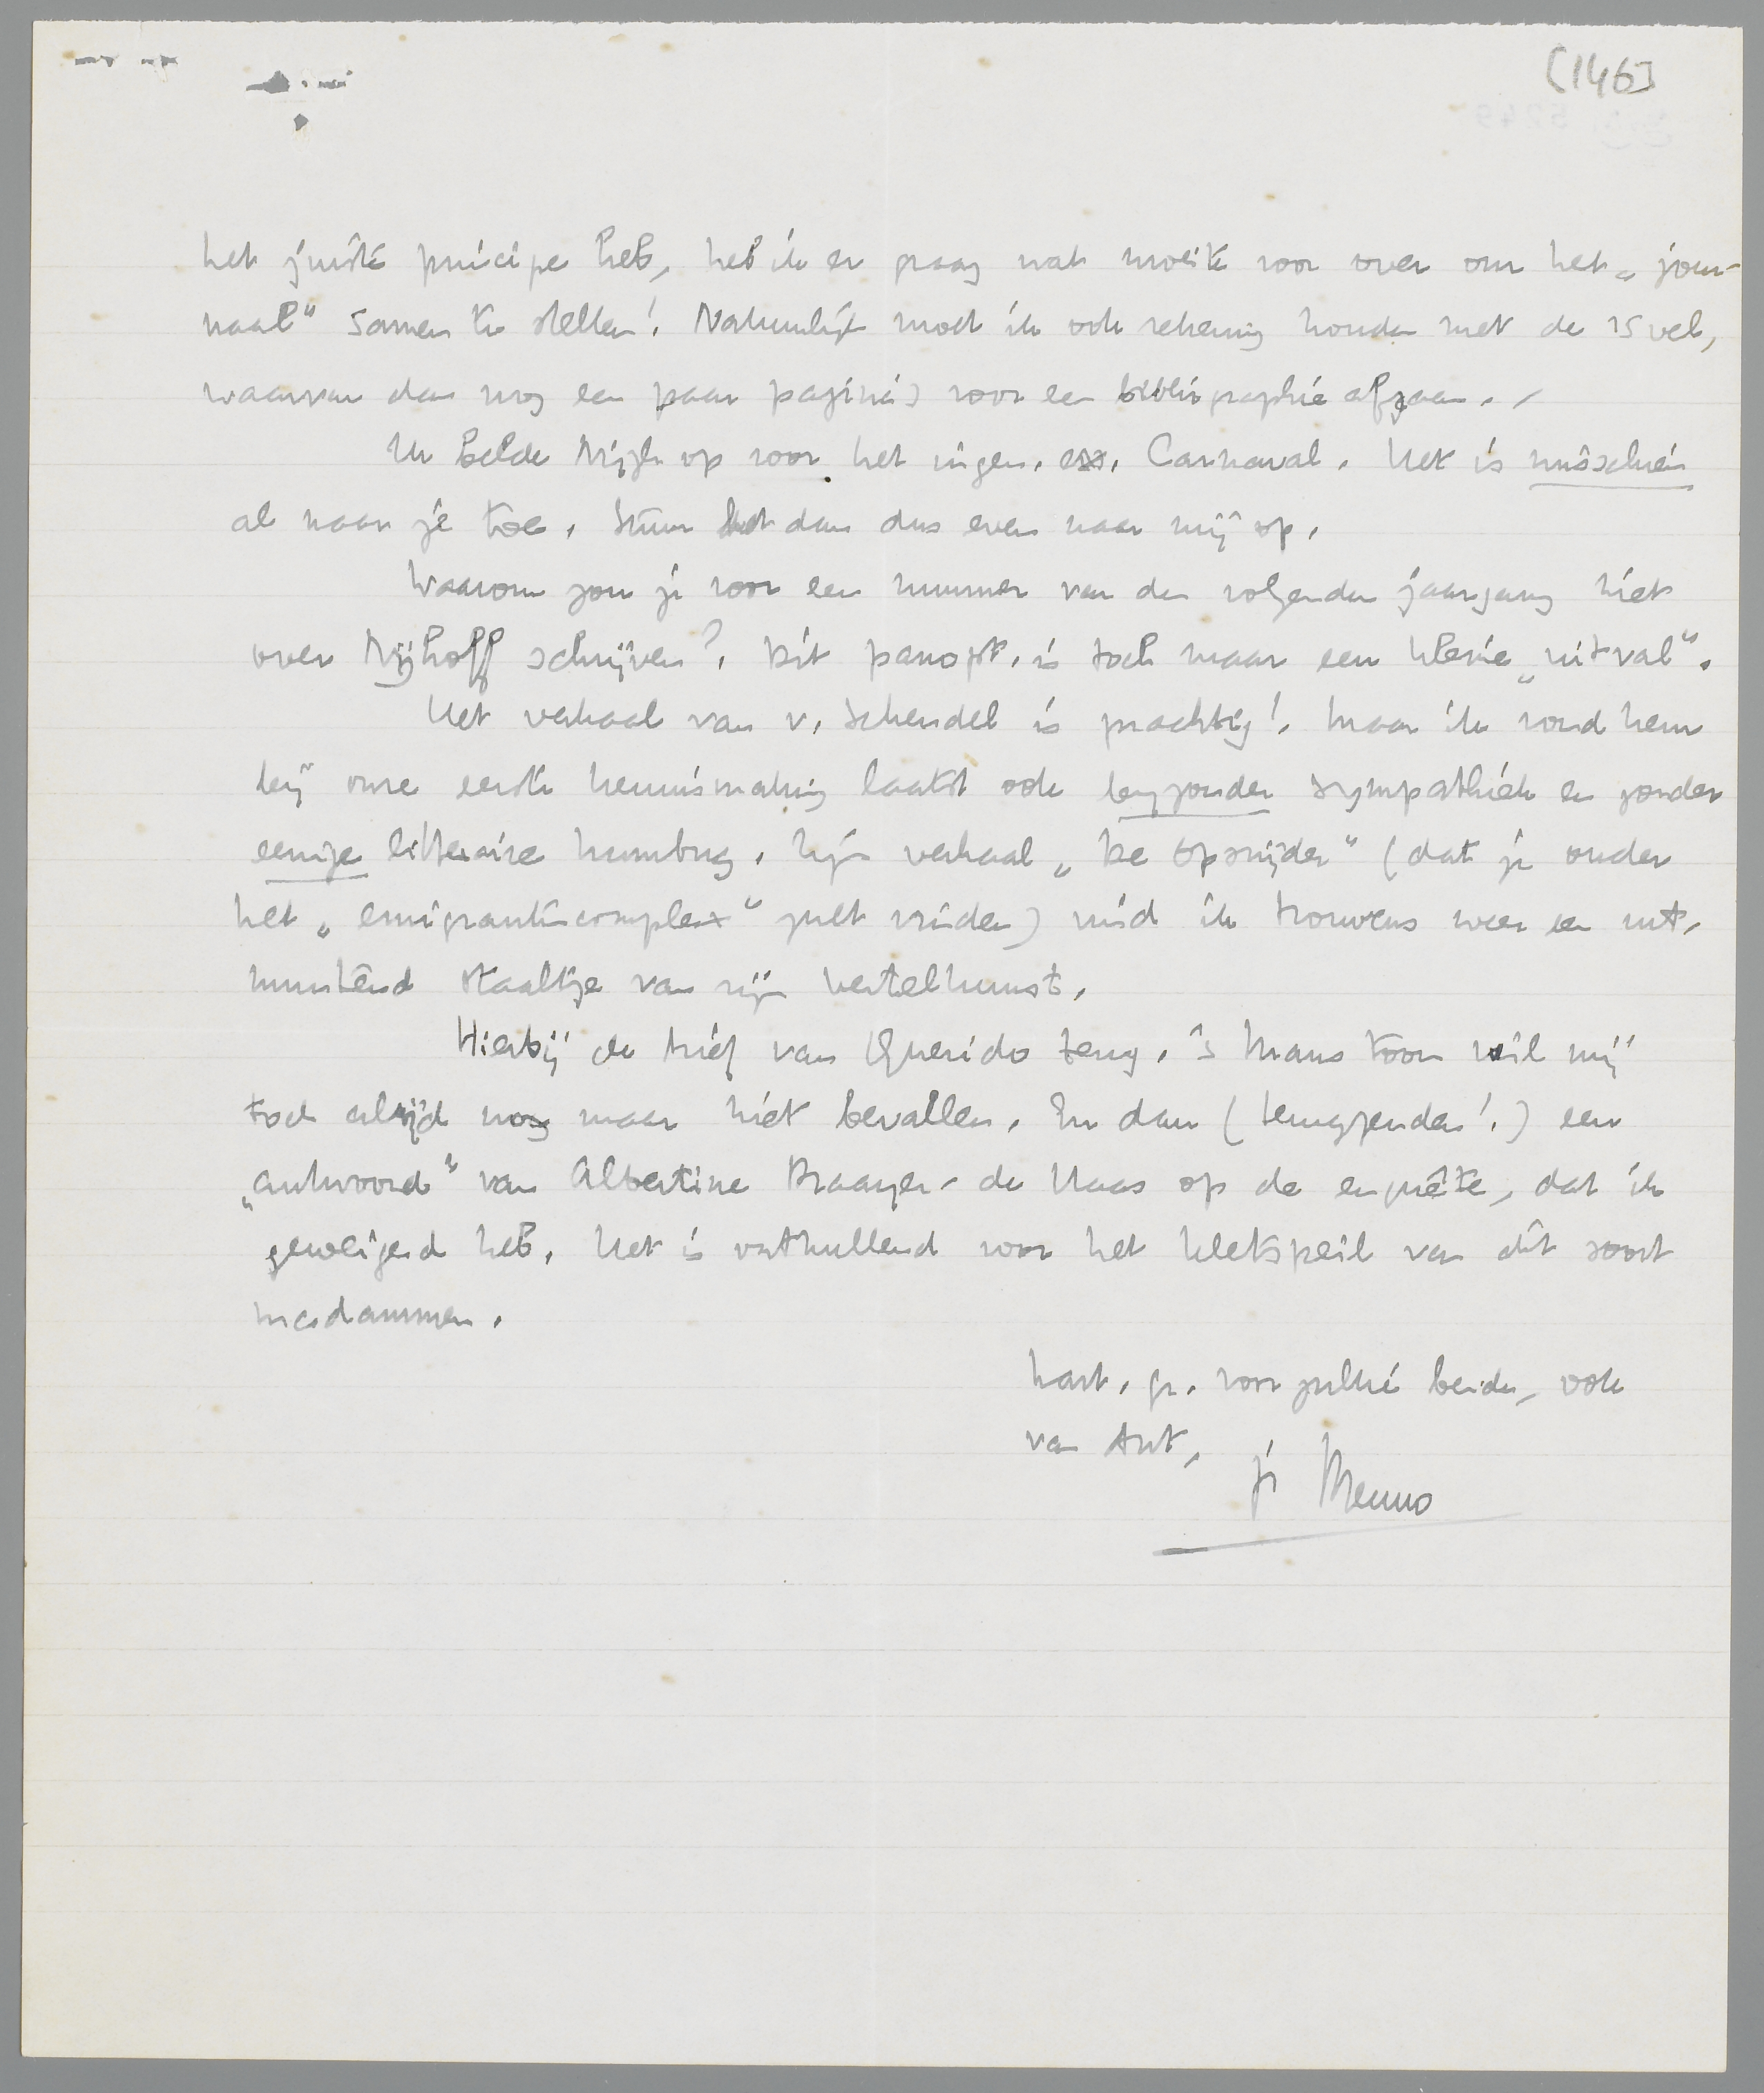 [146]
het juiste principe heb, heb ik er graag wat moeite voor over om het „jour-
naal" samen te stellen! Natuurlijk moet ik ook rekening houden met de 15 vel,
waarvan dan nog een paar pagina's voor een bibliographie afgaan. -
Ik belde Nijgh op voor het ingen. ex. Carnaval. Het is misschien
al naar je toe. Stuur het dan dus even naar mij op.
Waarom zou je voor een nummer van den volgenden jaargang niet
over Nijhoff schrijven? Dit panopt. is toch maar een kleine „uitval".
Het verhaal van v. Schendel is prachtig! Maar ik vond hem
bij onze eerste kennismaking laatst ook bijzonder sympathiek en zonder
eenige litteraire humbug. Zijn verhaal „De Opsnijder" (dat je onder
het „emigrantencomplex" zult vinden) vind ik trouwens weer een uit-
muntend staaltje van zijn vertelkunst.
Hierbij de brief van Querido terug. 's Mans toon wil mij
toch altijd nog maar niet bevallen. En dan (terugzenden!) een
„antwoord" van Albertine Draayer-de Haas op de enquête, dat ik
geweigerd heb. Het is onthullend voor het kletspeil van dit soort
madammen.
Hart. gr. voor jullie beiden, ook
van Ant,
je Menno